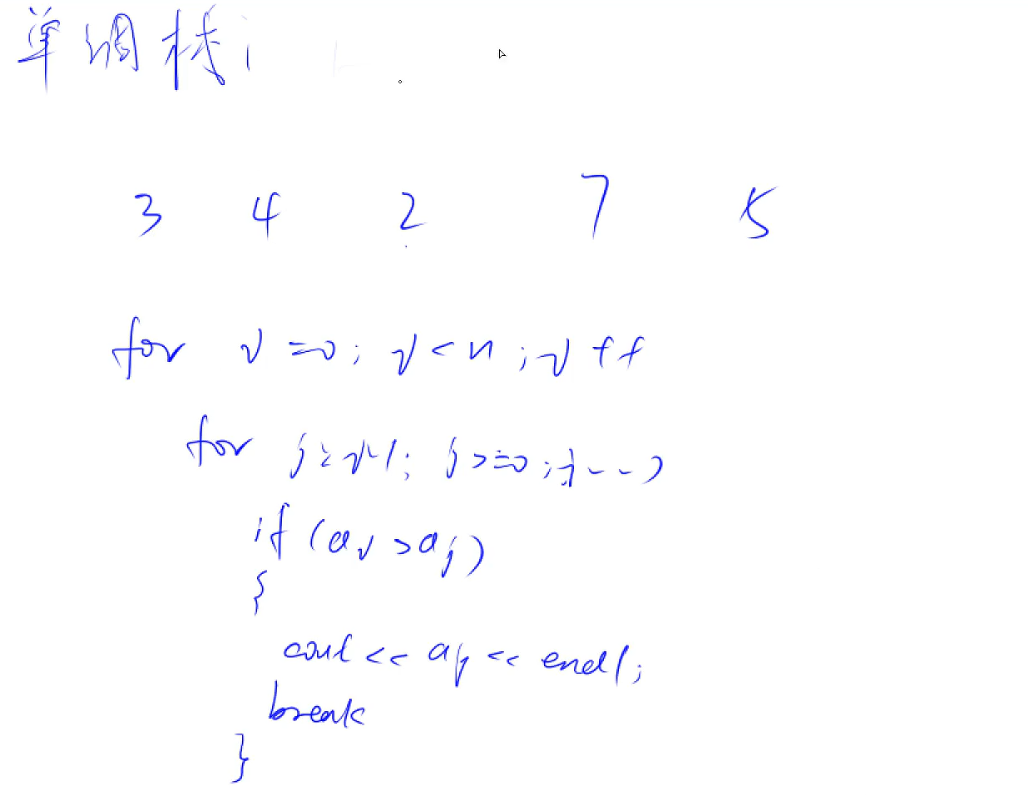 单调栈：
3 4 2 7 5
for i=0; i<n; i++
for j=i-1; j>=0; j--)
if (ai >aj)
{
cout << aj << endl;
break
}